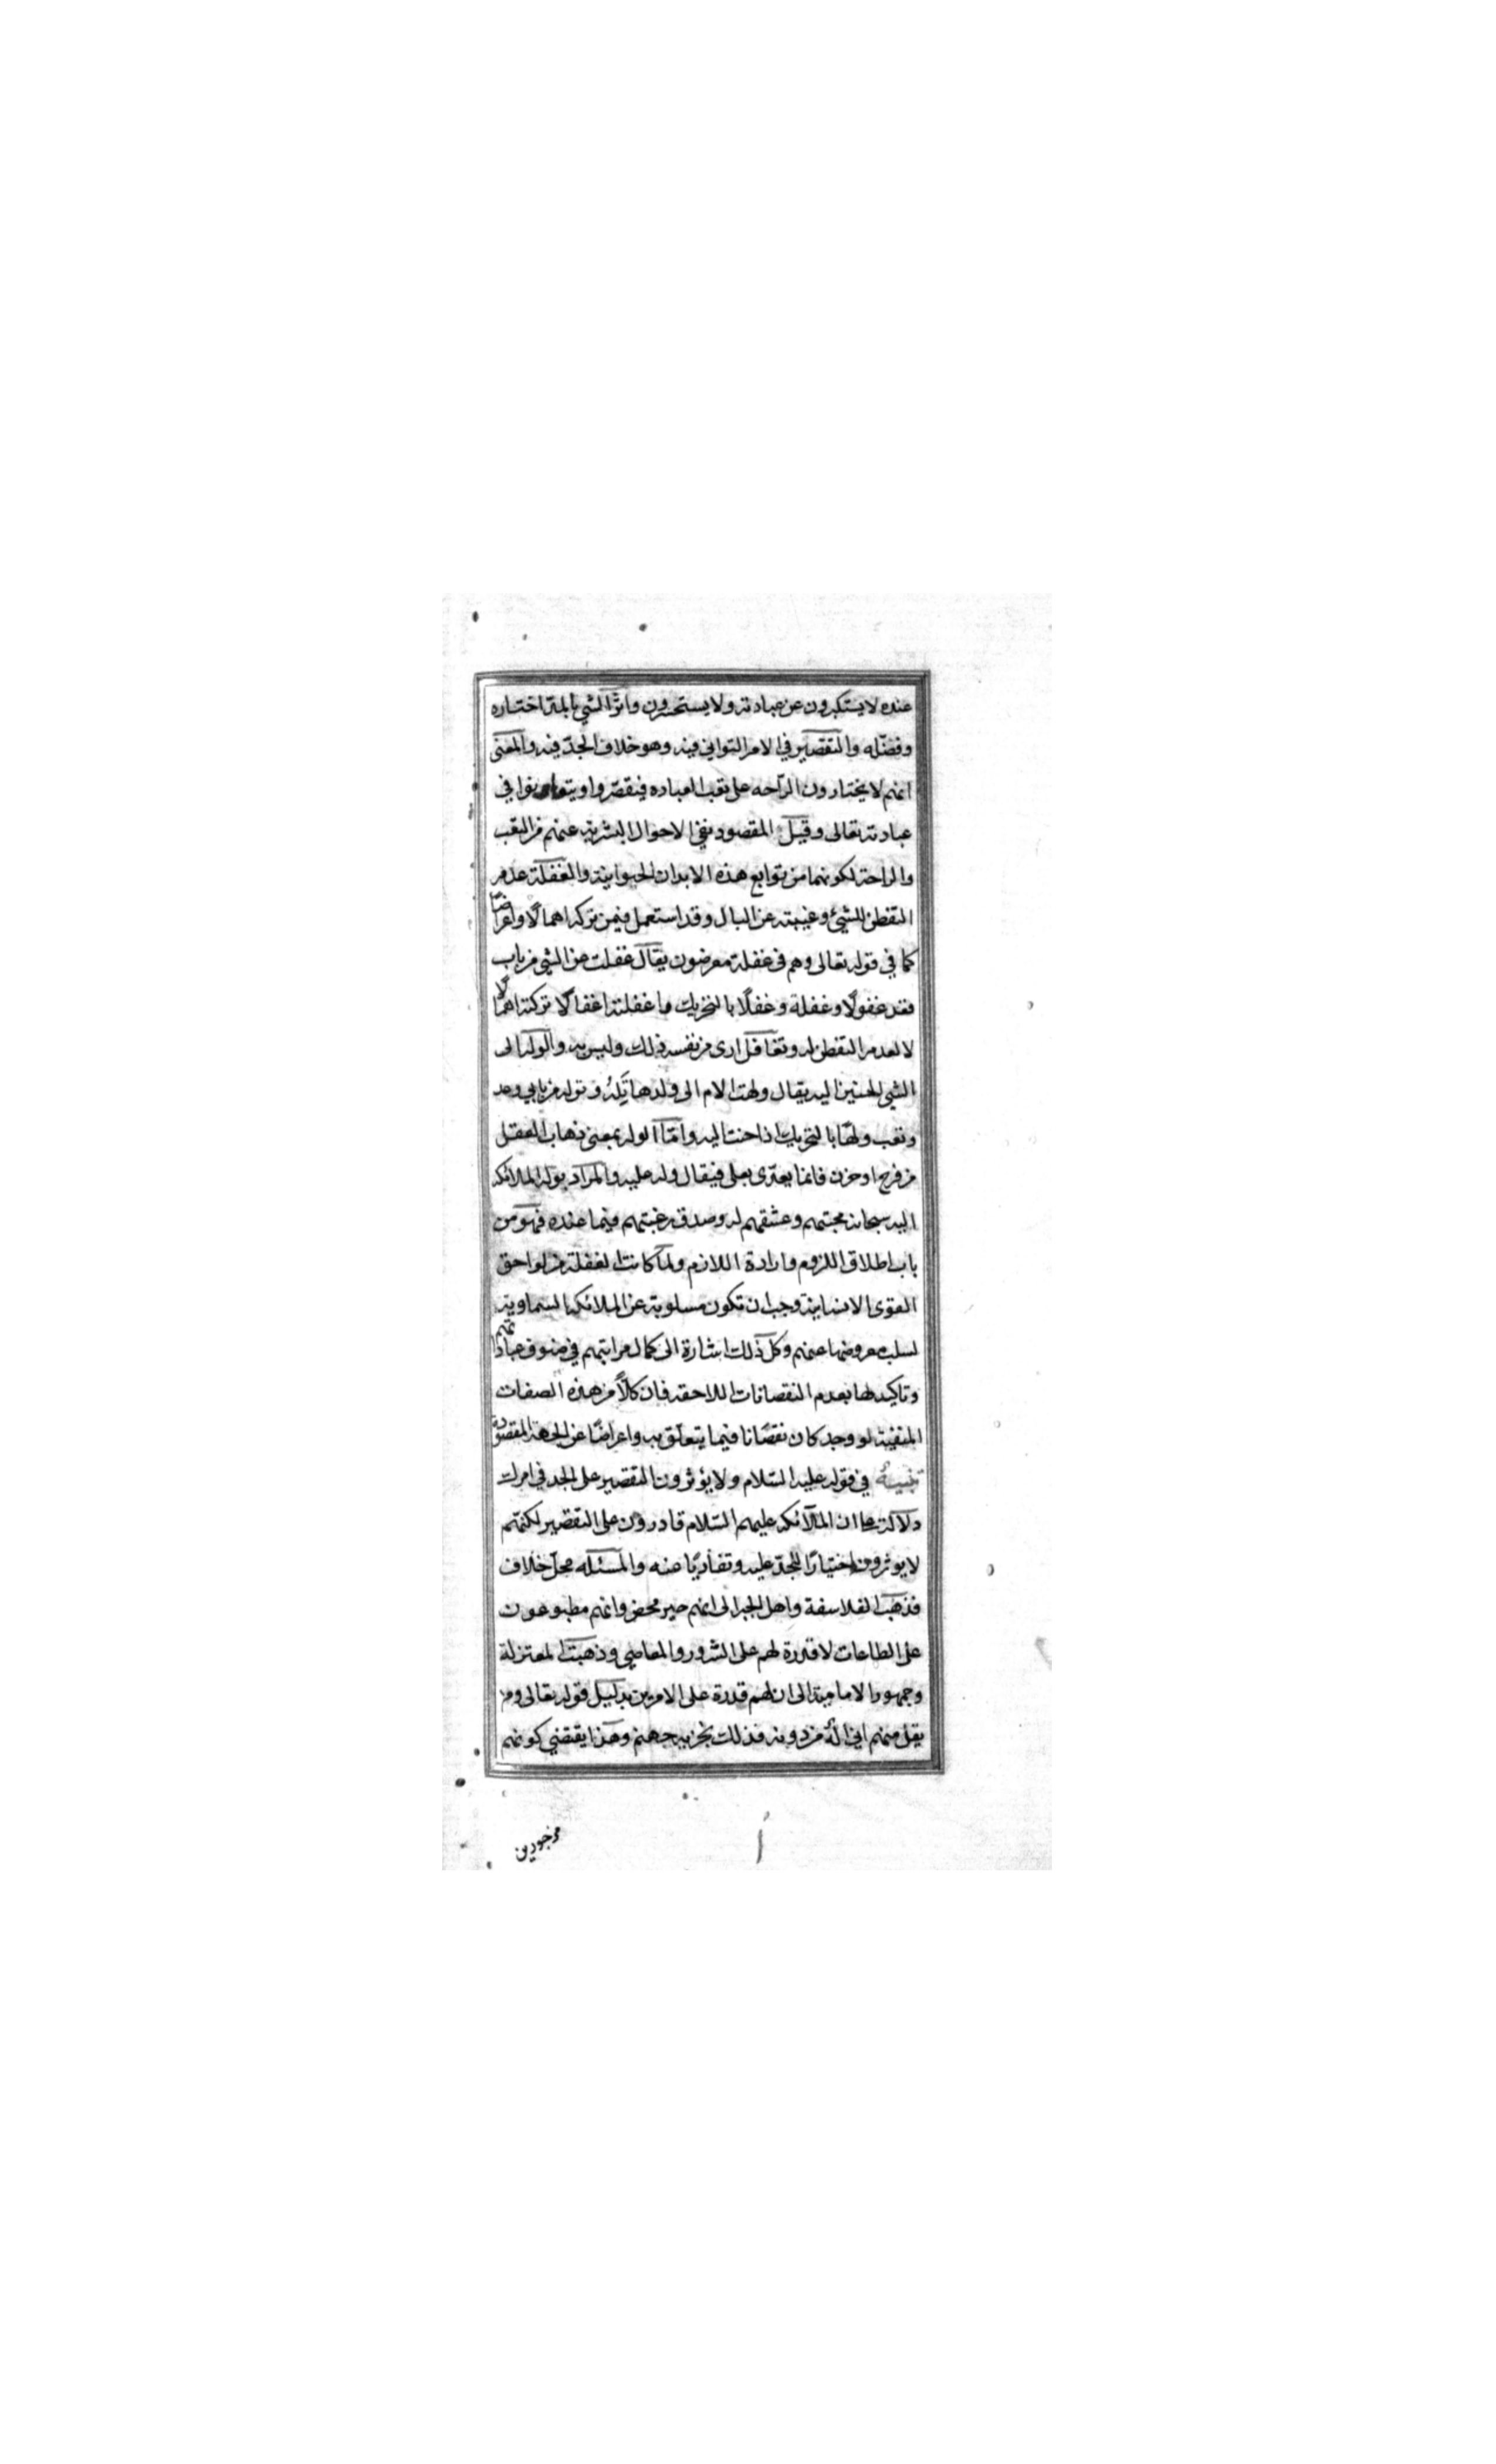 عنده لا يستكبرون عن عبادته ولا يستحسرون واثر الشي بالمد اختاره
وفضّله والتقصير في الامر التواني فيه وهو خلاف الجدّ فيه والمعنى
انهم لا يختارون الرّاحه على تعب العباده فيقصّروا ويتهاونوا في
عبادته تعالى وقيل المقصود نفي الاحوال البشريه عنهم من التعب
والراحة لكونهما من توابع هذه الابدان الحيوانية والغفلة عدم
التفطن للشيئ وغيبته عن البال وقد استعمل فيمن تركه اهمالًا واعراضًا
كما في قوله تعالى وهم في غفلة معرضون يقال غفلت عن الشي من باب
قعد غفولًا وغفلة وغفلًا بالتحريك واغفلته اغفالًا تركته اهمالًا
لا لعدم التفطن له وتغافل ارى من نفسه ذلك وليس به والوله الى
الشي الحنين اليه يقال ولهت الام الى ولدها تَلِهُ وتوله من بابي وعد
وتعب ولهًا بالتحريك اذا حنت اليه وامّا الوله بمعنى ذهاب العقل
من فرح او حزن فانما يعدّى بعلى فيقال وله عليه والمراد بوله الملائكه
اليه سبحانه محبتهم وعشقهم له وصدق رغبتهم فيما عنده فهو من
باب اطلاق اللزوم وارادة اللازم ولما كانت الغفلة من لواحق
القوى الانسانية وجب ان تكون مسلوبة عن الملائكه السماوية
لسلب معروضها عنهم وكل ذلك اشارة الى كمال مراتبهم في صنوف عباداتهم
وتاكيد لها بعدم النقصانات اللاحقه فان كلًّا من هذه الصفات
المنفية لو وجد كان نقصًانا فيما يتعلّق به واعراضًا عن الجهة المقصودة
تنبيهٌ في قوله عليه السّلام ولا يؤثرون التقصير على الجد في امرك
دلالة على ان الملآئكه عليهم السّلام قادرون على التقصير لكنّهم
لا يوثرونه اختيارًا للجدّ عليه وتفاديًا عنه والمسئله محلّ خلاف
فذهب الفلاسفة واهل الجبر الى انهم خير محض وانهم مطبوعون
على الطاعات لا قدرة لهم على الشرور والمعاصي وذهبت المعتزلة
وجمهور الامامية الى ان لهم قدرة على الامرين بدليل قوله تعالى ومن
يقل منهم اني اله من دونه فذلك نجزيه جهنم وهذا يقتضي كونهم
مزجورين